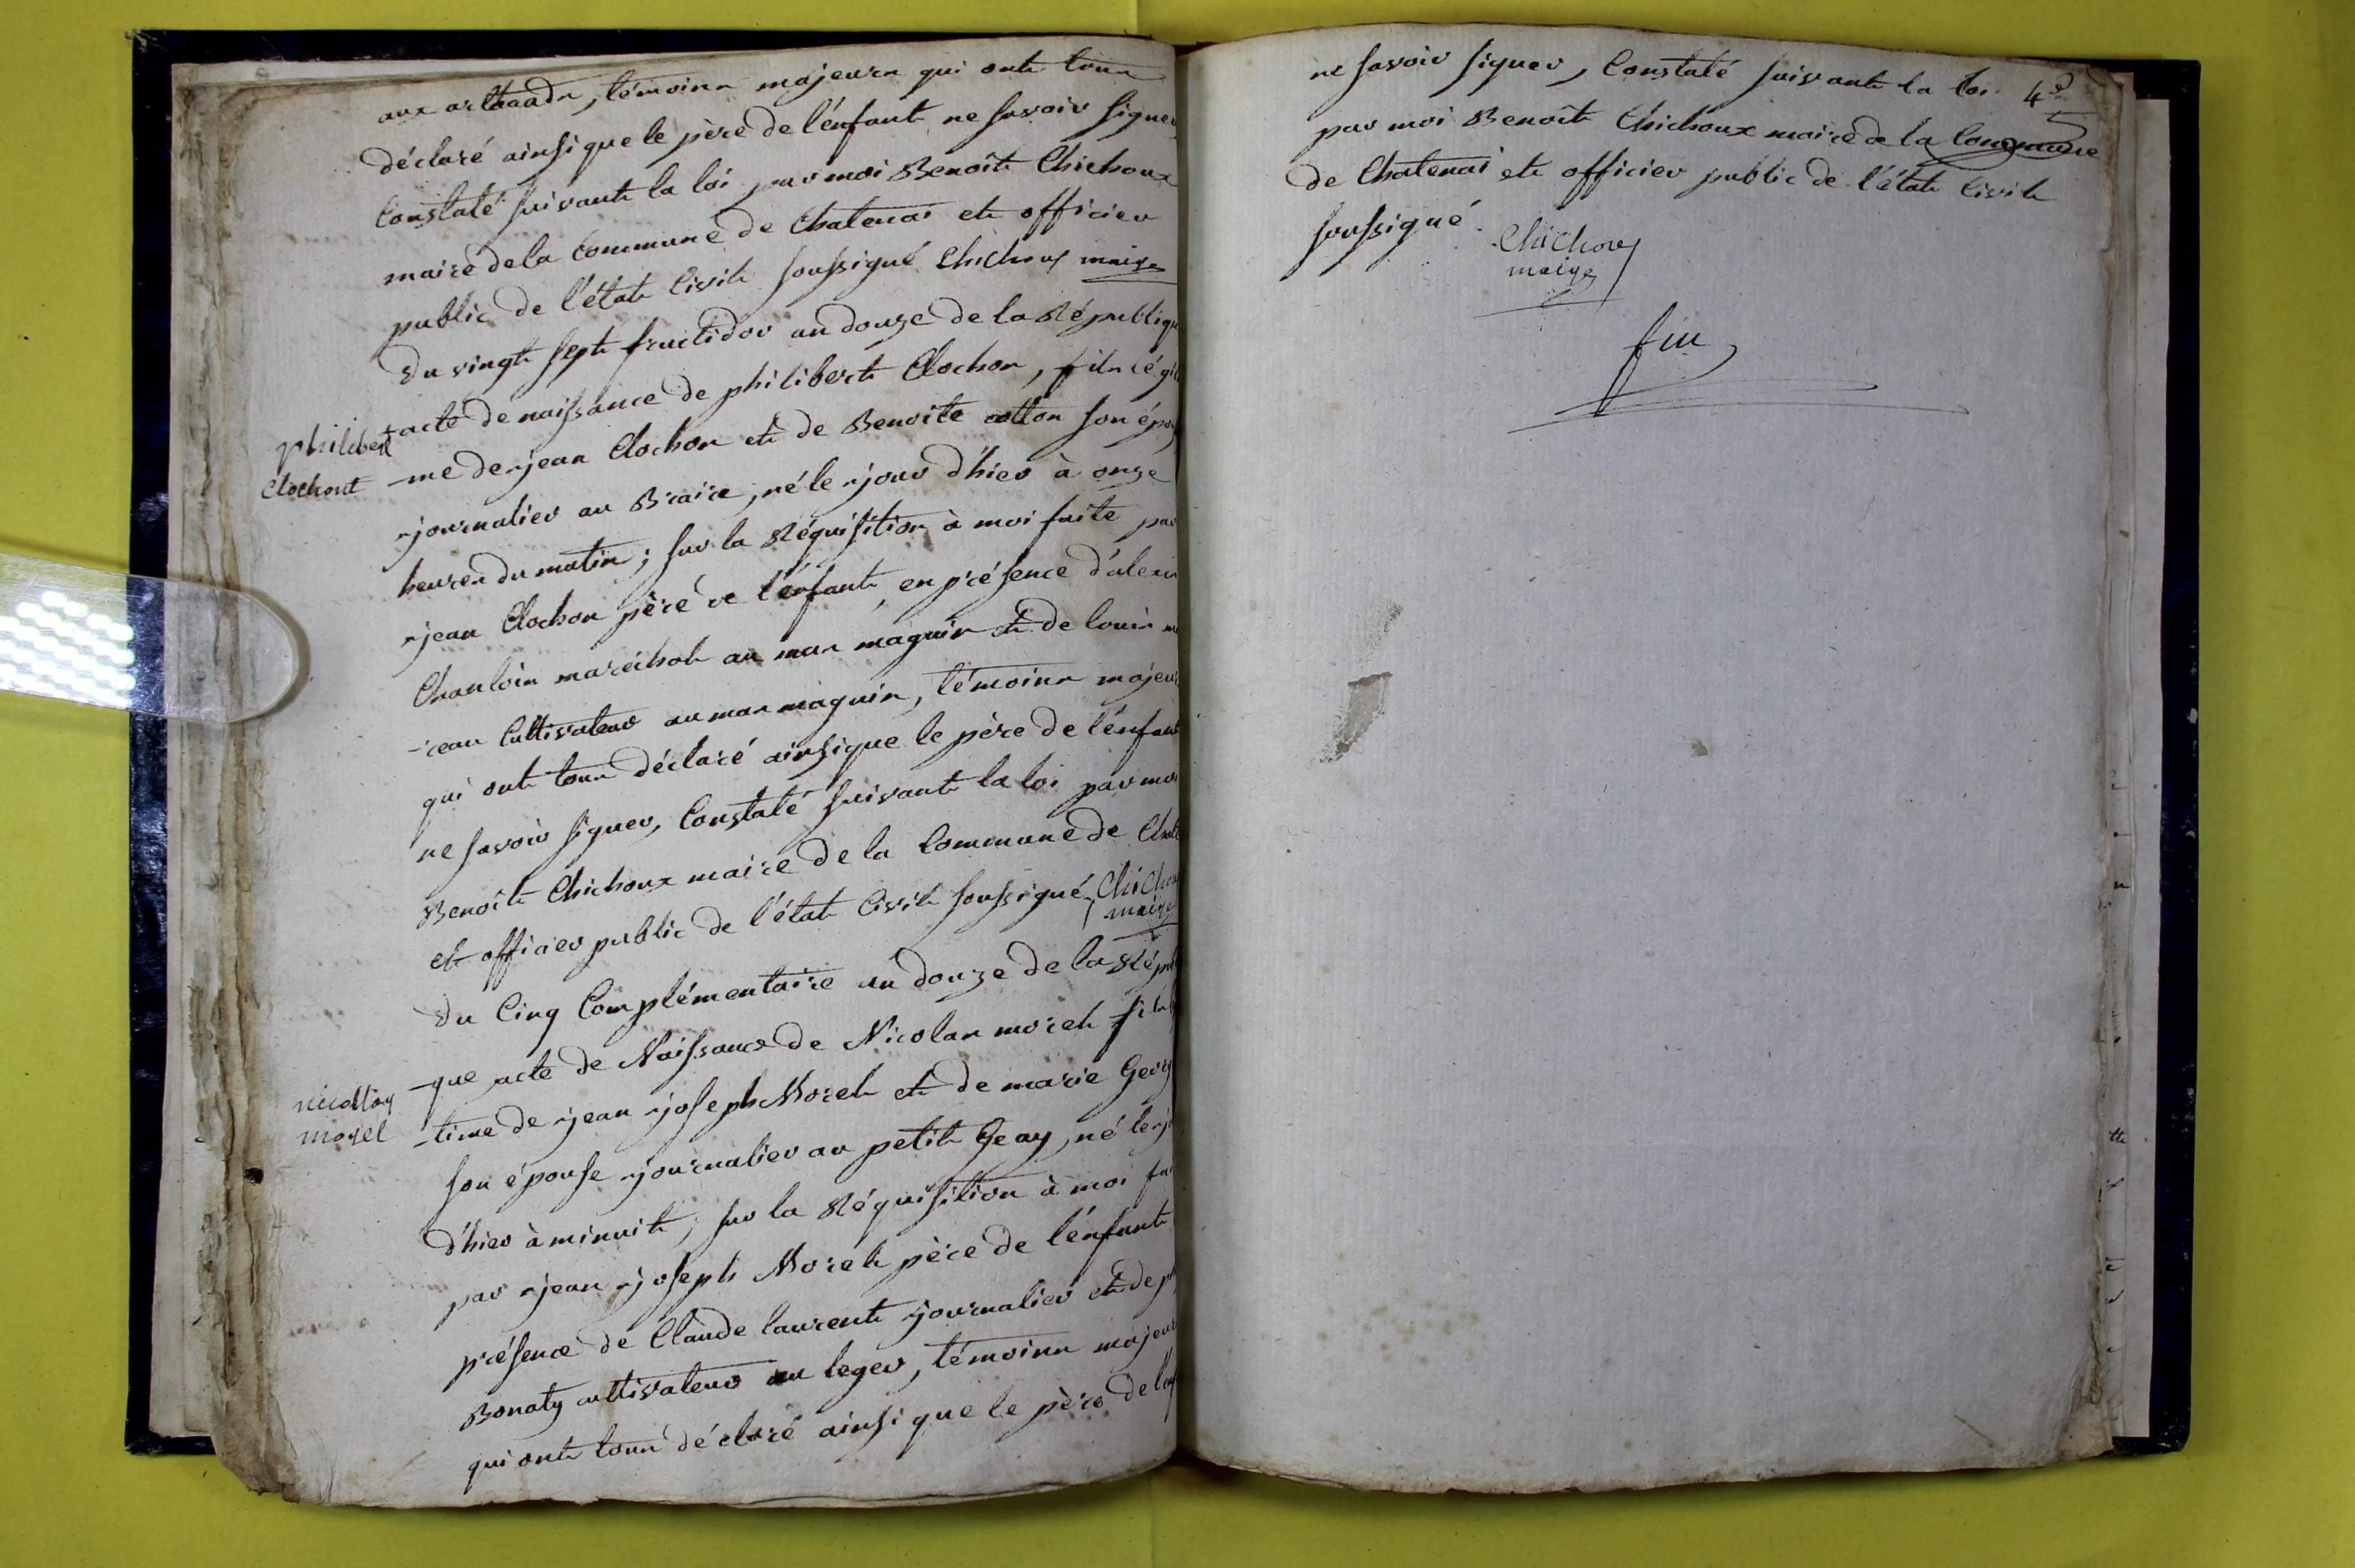 aux arthauds, témoins majeurs qui ont tous
déclaré ainsi que le père de l'énfant ne savoir signer
Constaté suivant la loi par moi Benoît Chichoux
maire de la Commune de Chatenai et officier
public de l'état Civil soussigné Chichoux maire
Du vingt sept fructidor an douze de la Républiq
acte de naissance de philibert Clochon, fils légi
philibert
Clochont
-me de jean Clochon et de Benoite cotton son épou
journalier au Braire, né le jour d'hier à onze
heures du matin; sur la Réquisition à moi faite par
jean Clochon père de l'énfant, en présence d'alexi
Chanloin maréchal au mas maguin et de louis mo
-reau Cultivateur au mas maguin, témoins majeur
qui ont tous déclaré ainsi que le père de l'énfant
ne savoir signer, Constaté suivant la loi par moi
Benoît Chichoux maire de la Commune de Chate
et officier public de l'état Civil soussigné, Chichoux
maire
Du Cinq Complémentaire an douze de la Répu
-que acte de Naissance de Nicolas morel fils
nicollas
morel
-time de jean joseph Morel et de marie Geor
son épouse journalier au petit Geay, né le j
d'hier à minuit; sur la Réquisition à moi fai
par jean joseph Morel père de l'énfant
présence de Claude laurent journalier et de p
Bonaty cultivateur au leger, témoins majeur
qui ont tous déclaré ainsi que le père de l'enf
ne savoir signer, Constaté suivant la loi 4e
par moi Benoît Chichoux maire de la Commune
de Chatenai et officier public de l'état Civil
soussigné.
Chichoux
maire
fin